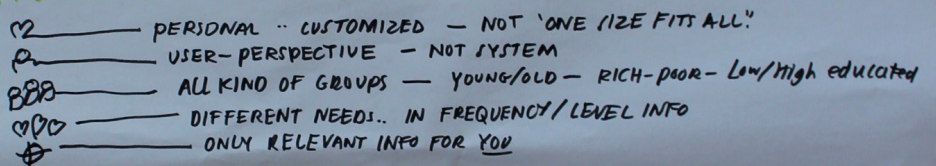 PERSONAL .. CUSTOMIZED — NOT 'ONE SIZE FITS ALL'.
USER-PERSPECTIVE — NOT SYSTEM
ALL KIND OF GROUPS — YOUNG/OLD — RICH-POOR- Low/High educated
DIFFERENT NEEDS.. IN FREQUENCY/LEVEL INFO
ONLY RELEVANT INFO FOR YOU